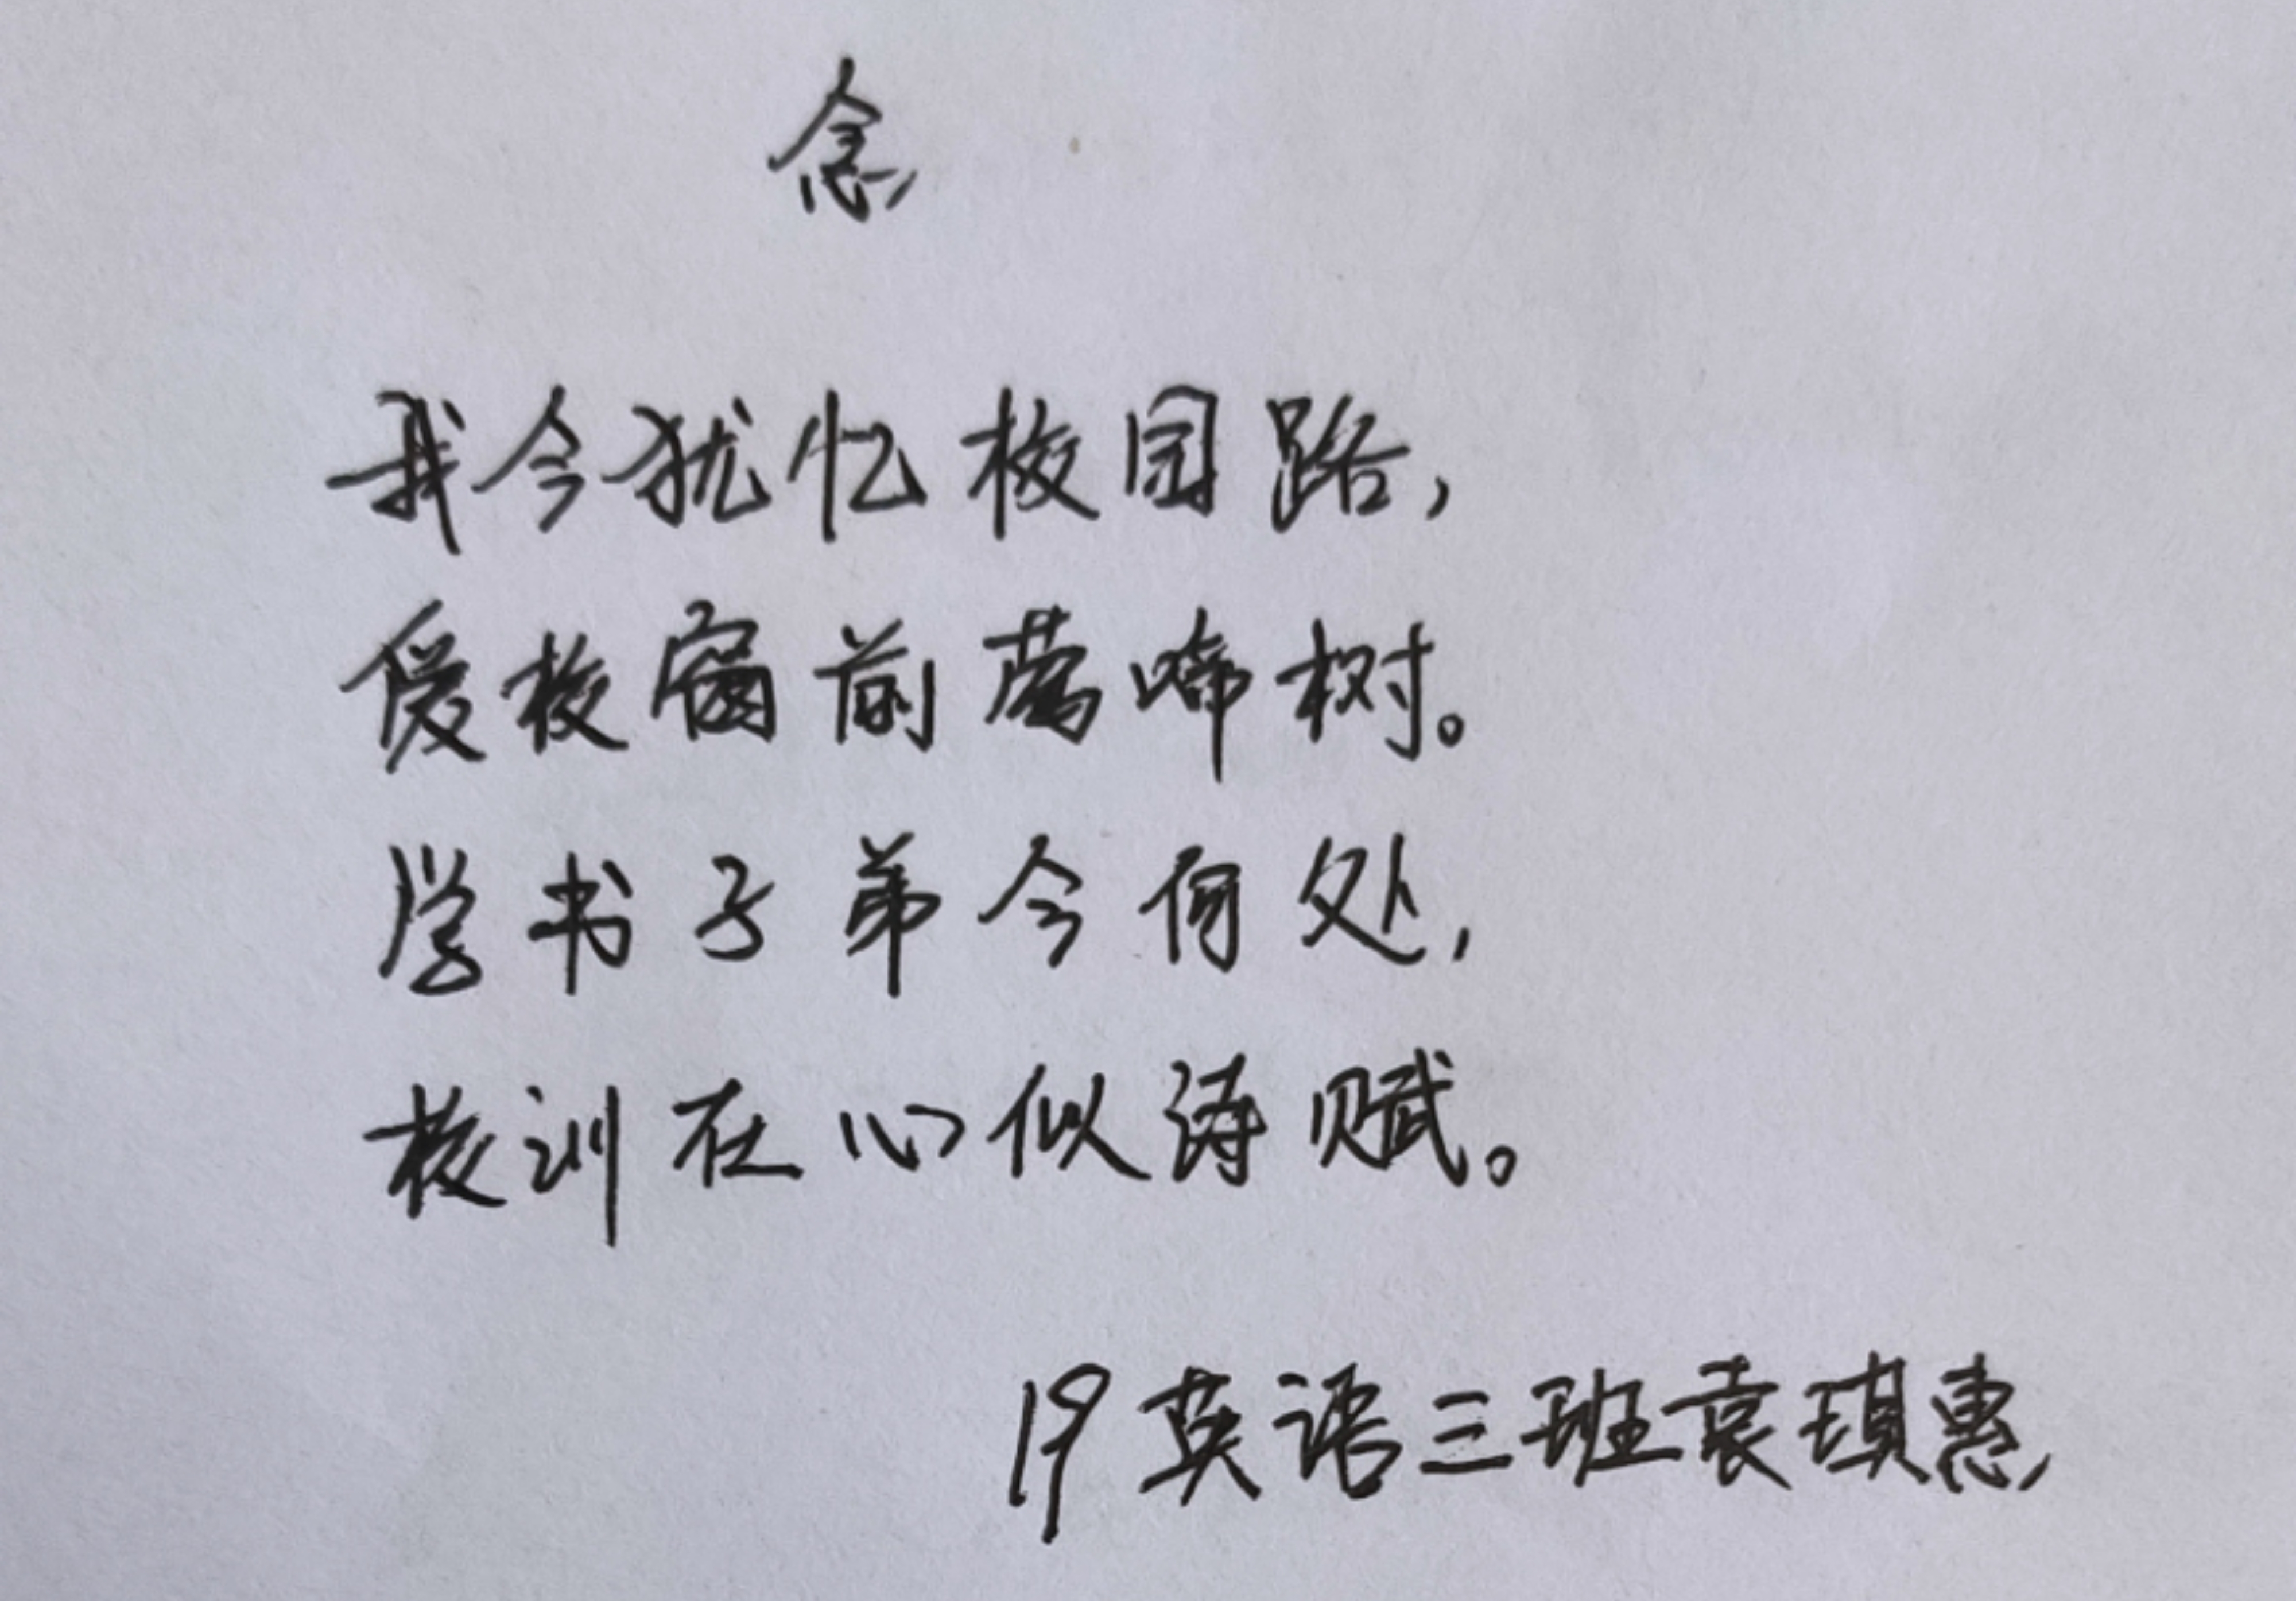 念
我今犹忆校园路,
爱校窗前莺啼树。
学书子弟今何处,
校训在心似诗赋。
19英语三班袁琪惠